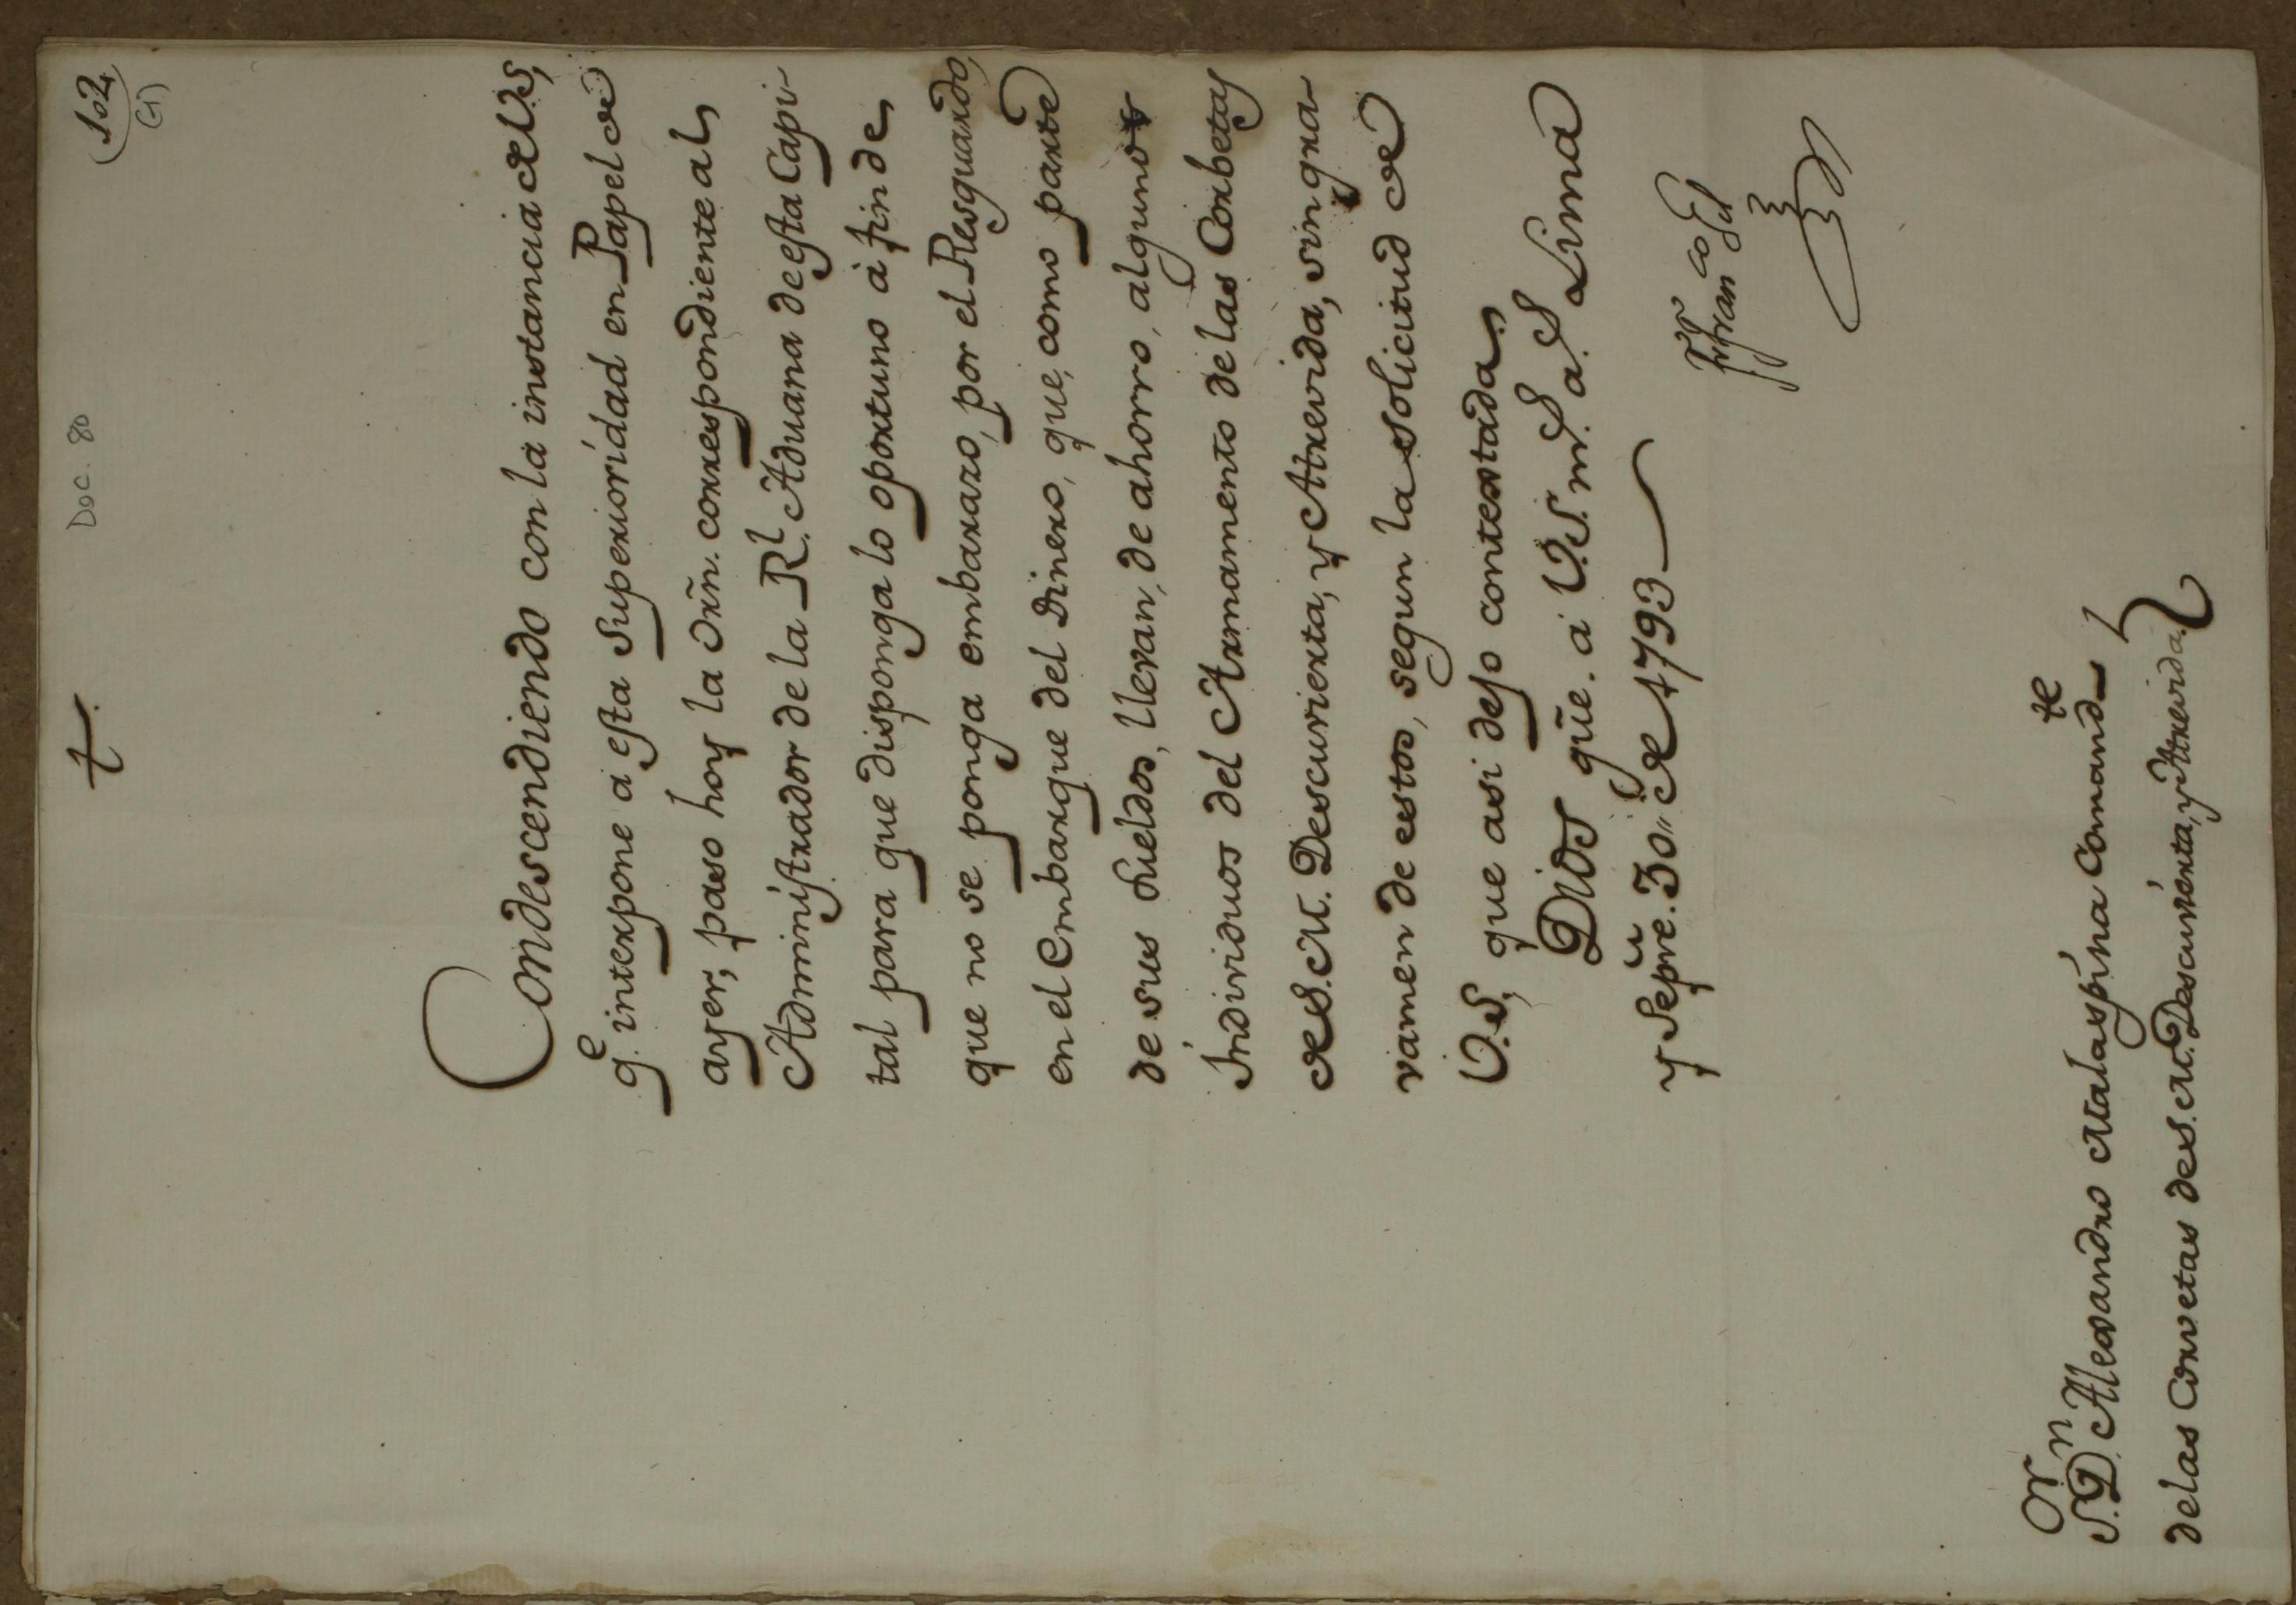 102
(1)
Doc. 80
t
Condescendiendo con la instancia de V.S,
q.e interpone a esta Superioridad en Papel de
ayer, paso hoy la orn̄. correspondiente al
Administrador de la R.l Aduana de esta Capi-
tal para que disponga lo oportuno á fin de
que no se ponga embarazo, por el Resguardo,
en el embarque del Dinero, que, como parte
de sus sueldos, llevan, de ahorro, algunos
Individuos del Armamento de las Corbetas
de S.M. Descuvierta, y Atrevida, sin gra-
vamen de estos, segun la solicitud de
V.S, que asi dejo contestada.
Dios gūe. á V.S. m.s a.s Lima
y Sepre. 30,, de 1793
Fr. Fran.co Gil
S.or D.n Alexandro Malaspina Comand.te
de las Corvetas de S.M. Descuvierta, y Atrevida.